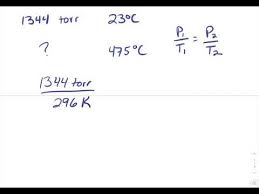 1344 torr 23°C
? 475°C P₁/T₁ = P₂/T₂
1344 torr
296 K